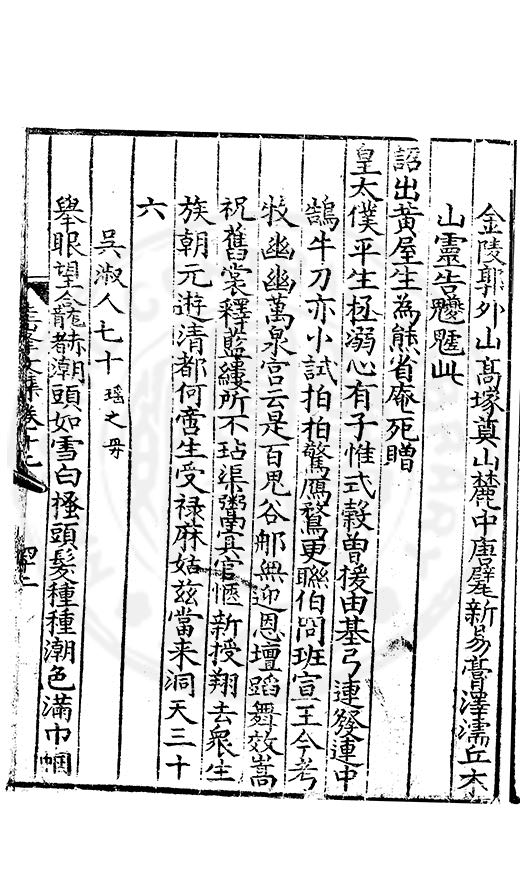 金陵郭外山高塚奠山麓中唐甓新易膏澤濡丘木
山靈告夔魖此
詔出黃屋生為熊省庵死贈
皇太僕平生極溺心有子惟式穀曾援由基弓連發連中
鵠牛刀亦小試拍拍驚鴈鶩更聯伯冏班宣王今考
牧幽幽萬泉宮云是百鬼谷那無迎恩壇蹈舞效嵩
祝舊裳釋藍縷所不玷渠鬻冥官愜新授翔去眾生
族朝元遊清都何啻生受祿麻姑茲當來洞天三十
六
吳淑人七十瑤之母
舉眼望龕赭潮頭如雪白搔頭髮種種潮色滿巾幗